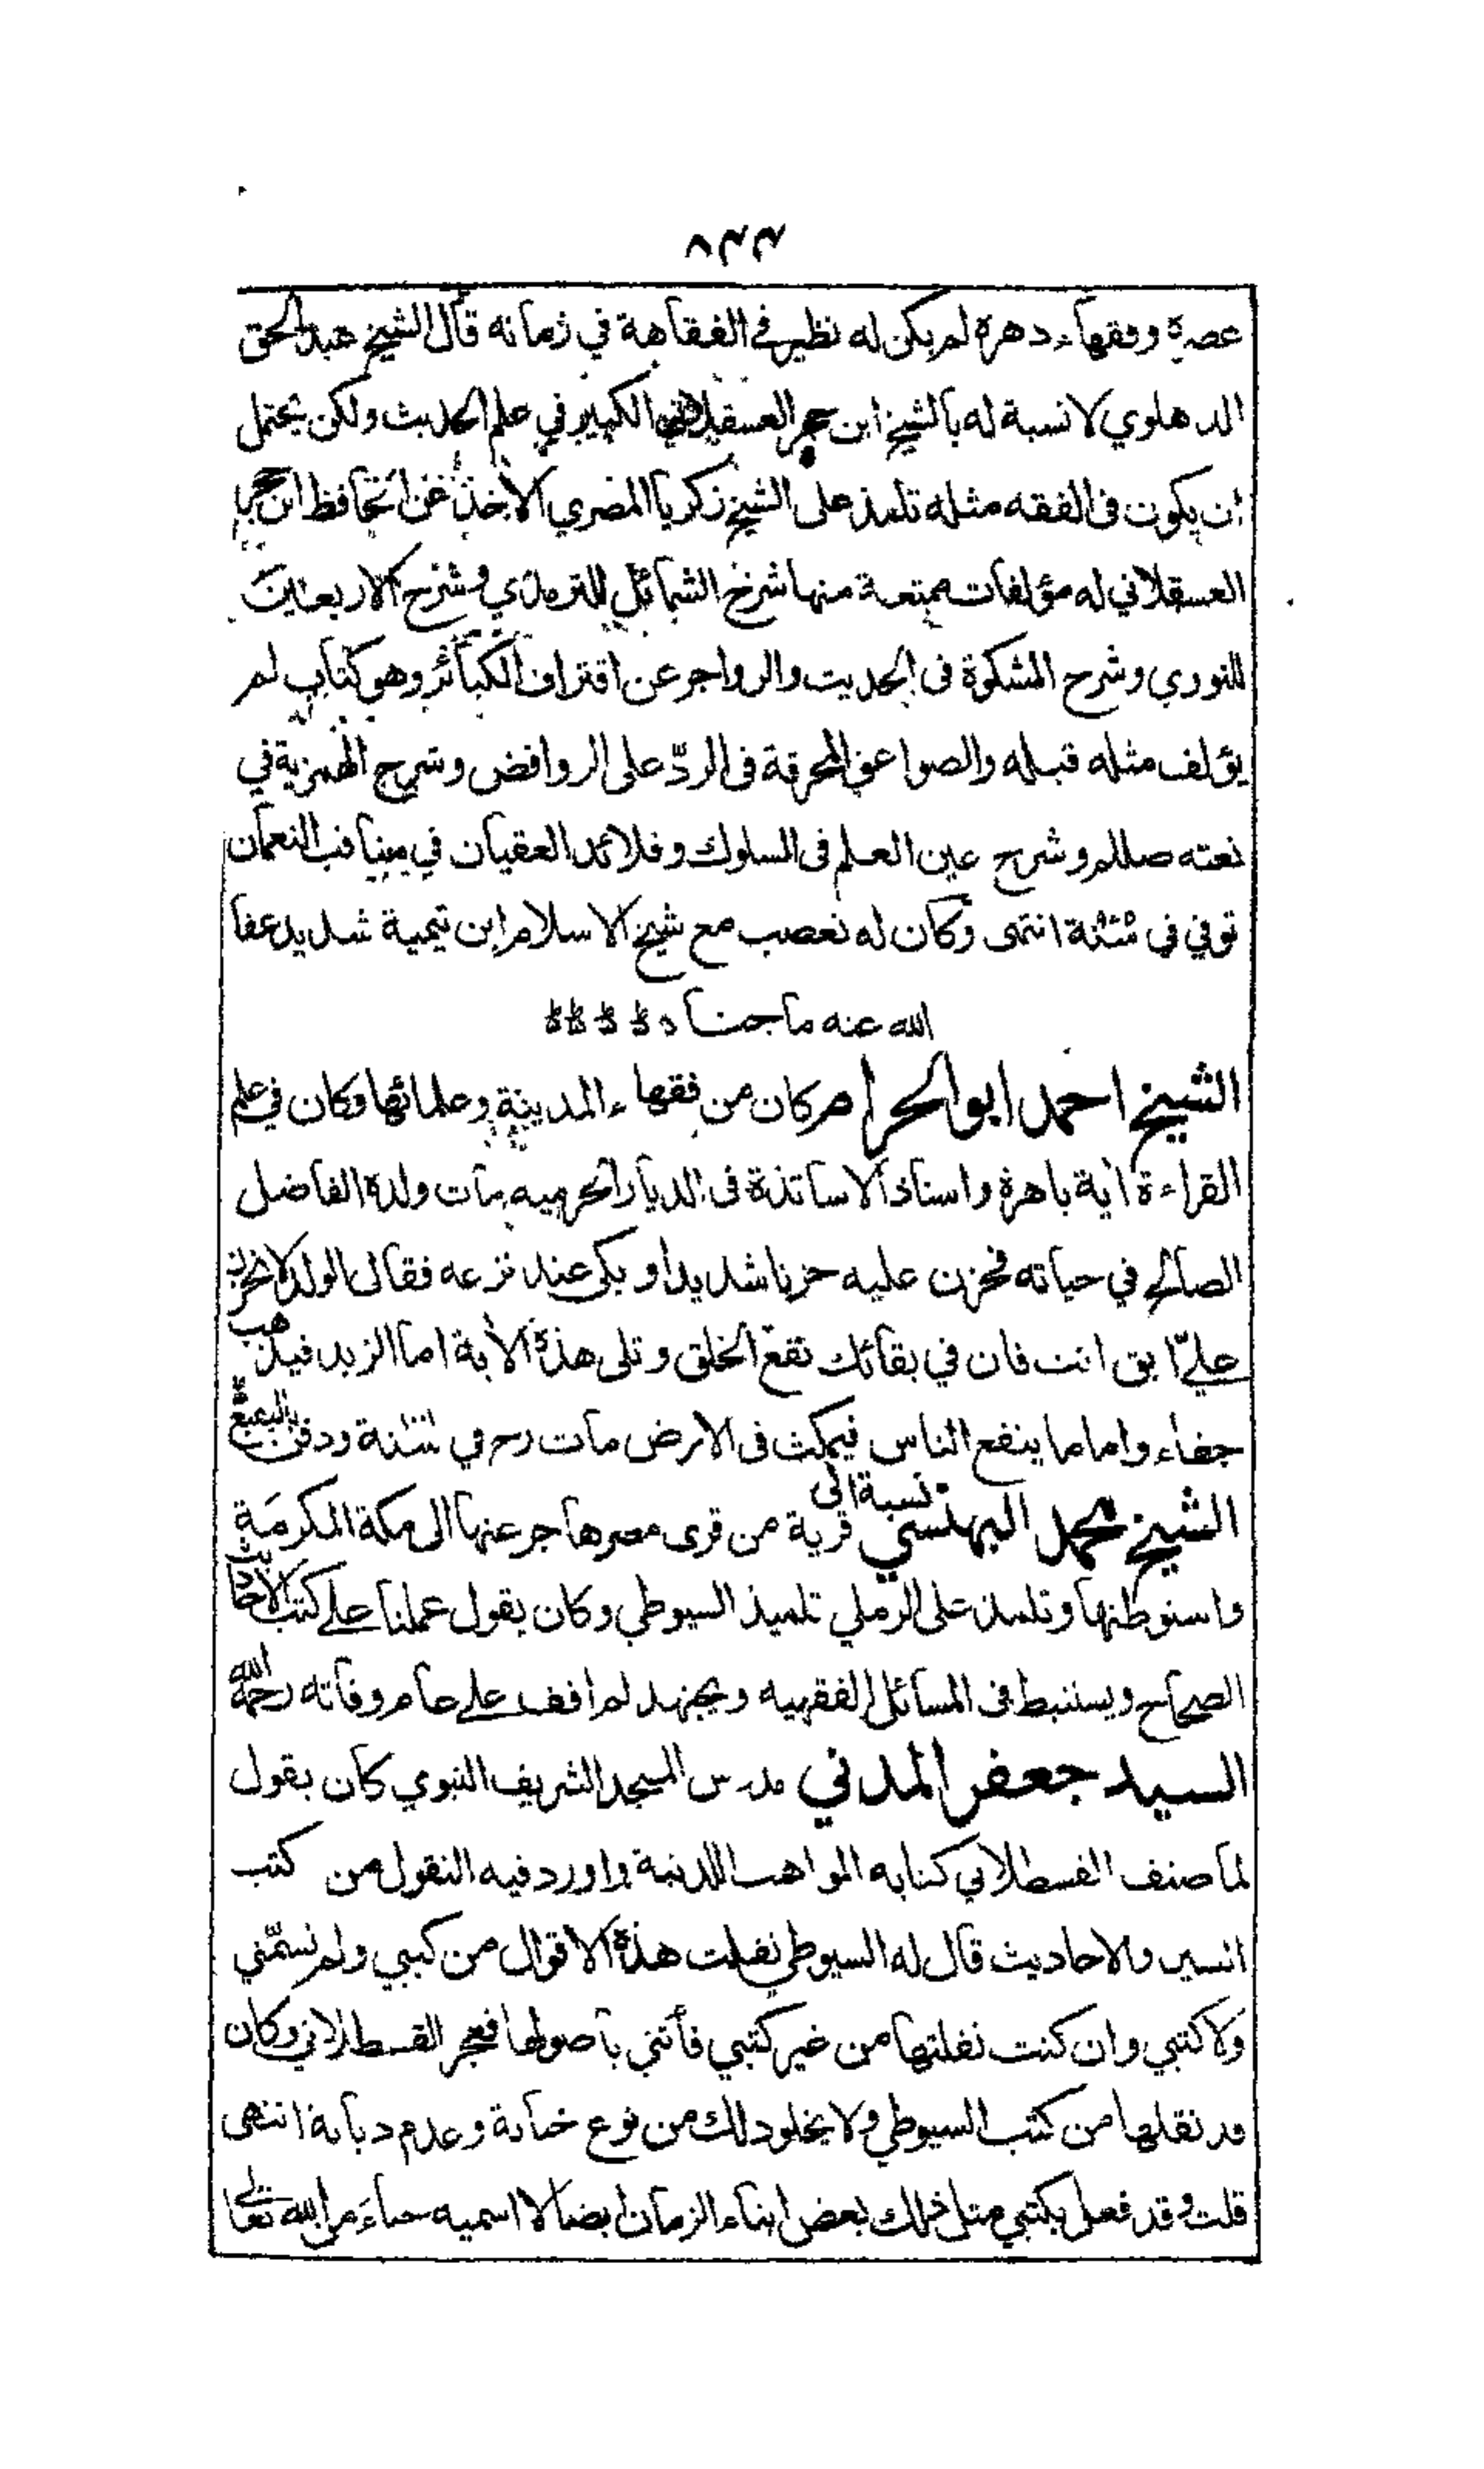 ٨٣٣
عصره وفقهاء دهره لم يكن له نظير في الفقاهة في زمانه قال الشيخ عبد الحق
الدهلوي لا نسبة له بالشيخ ابن حجر العسقلاني الكبير في علم الحديث ولكن يحتمل
ان يكون في الفقه مثله تلمذ على الشيخ زكريا المصري الآخذ عن الحافظ ابن حجر
العسقلاني له مؤلفات ممتعة منها شرح الشمائل للترمذي وشرح الاربعين
للنووي وشرح المشكوة في الحديث والزواجر عن اقتراف الكبائر وهو كتاب لم
يؤلف مثله قبله والصواعق المحرقة في الردّ على الروافض وشرح الهمزية في
نعته صللم وشرح عين العلم في السلوك وقلائد العقيان في مناقب النعمان
توفي في سنة انتهى وكان له تعصب مع شيخ الاسلام ابن تيمية شديد عفا
الله عنه ما جناه
الشيخ احمد ابو الحرام كان من فقهاء المدينة وعلمائها وكان في علم
القراءة آية باهرة واستاذ الاساتذة في الديار الحرميه مات ولده الفاضل
الصالح في حياته فحزن عليه حزنا شديدا وبكى عند نزعه فقال الولد لا تحزن
عليّ ابق انت فان في بقائك نفع الخلق وتلى هذه الآية اما الزبد فيذهب
جفاء واما ما ينفع الناس فيمكث في الارض مات رح في سنة ودفن بالبقيع
الشيخ محمد البهنسي نسبة الى قرية من قرى مصر هاجر عنها الى مكة المكرمة
واستوطنها وتلمذ على الرملي تلميذ السيوطي وكان يقول عملنا على كتب الاحاديث
الصحاح ويستنبط في المسائل الفقهيه ويجتهد لم اقف على عام وفاته رحمه الله
السيد جعفر المدني مدرس المسجد الشريف النبوي كان يقول
لما صنف القسطلاني كتابه المواهب اللدنية واورد فيه النقول من كتب
السير والاحاديث قال له السيوطي نقلت هذه الاقوال من كتبي ولم تسمّني
ولا كتبي وان كنت نقلتها من غير كتبي فأتني بأصولها فعجز القسطلاني وكان
قد نقلها من كتب السيوطي ولا يخلو ذلك من نوع خيانة وعدم ديانة انتهى
قلت وقد فعل بكتبي مثل ذلك بعض ابناء الزمان ايضا لا اسميه حياء من الله تعالى